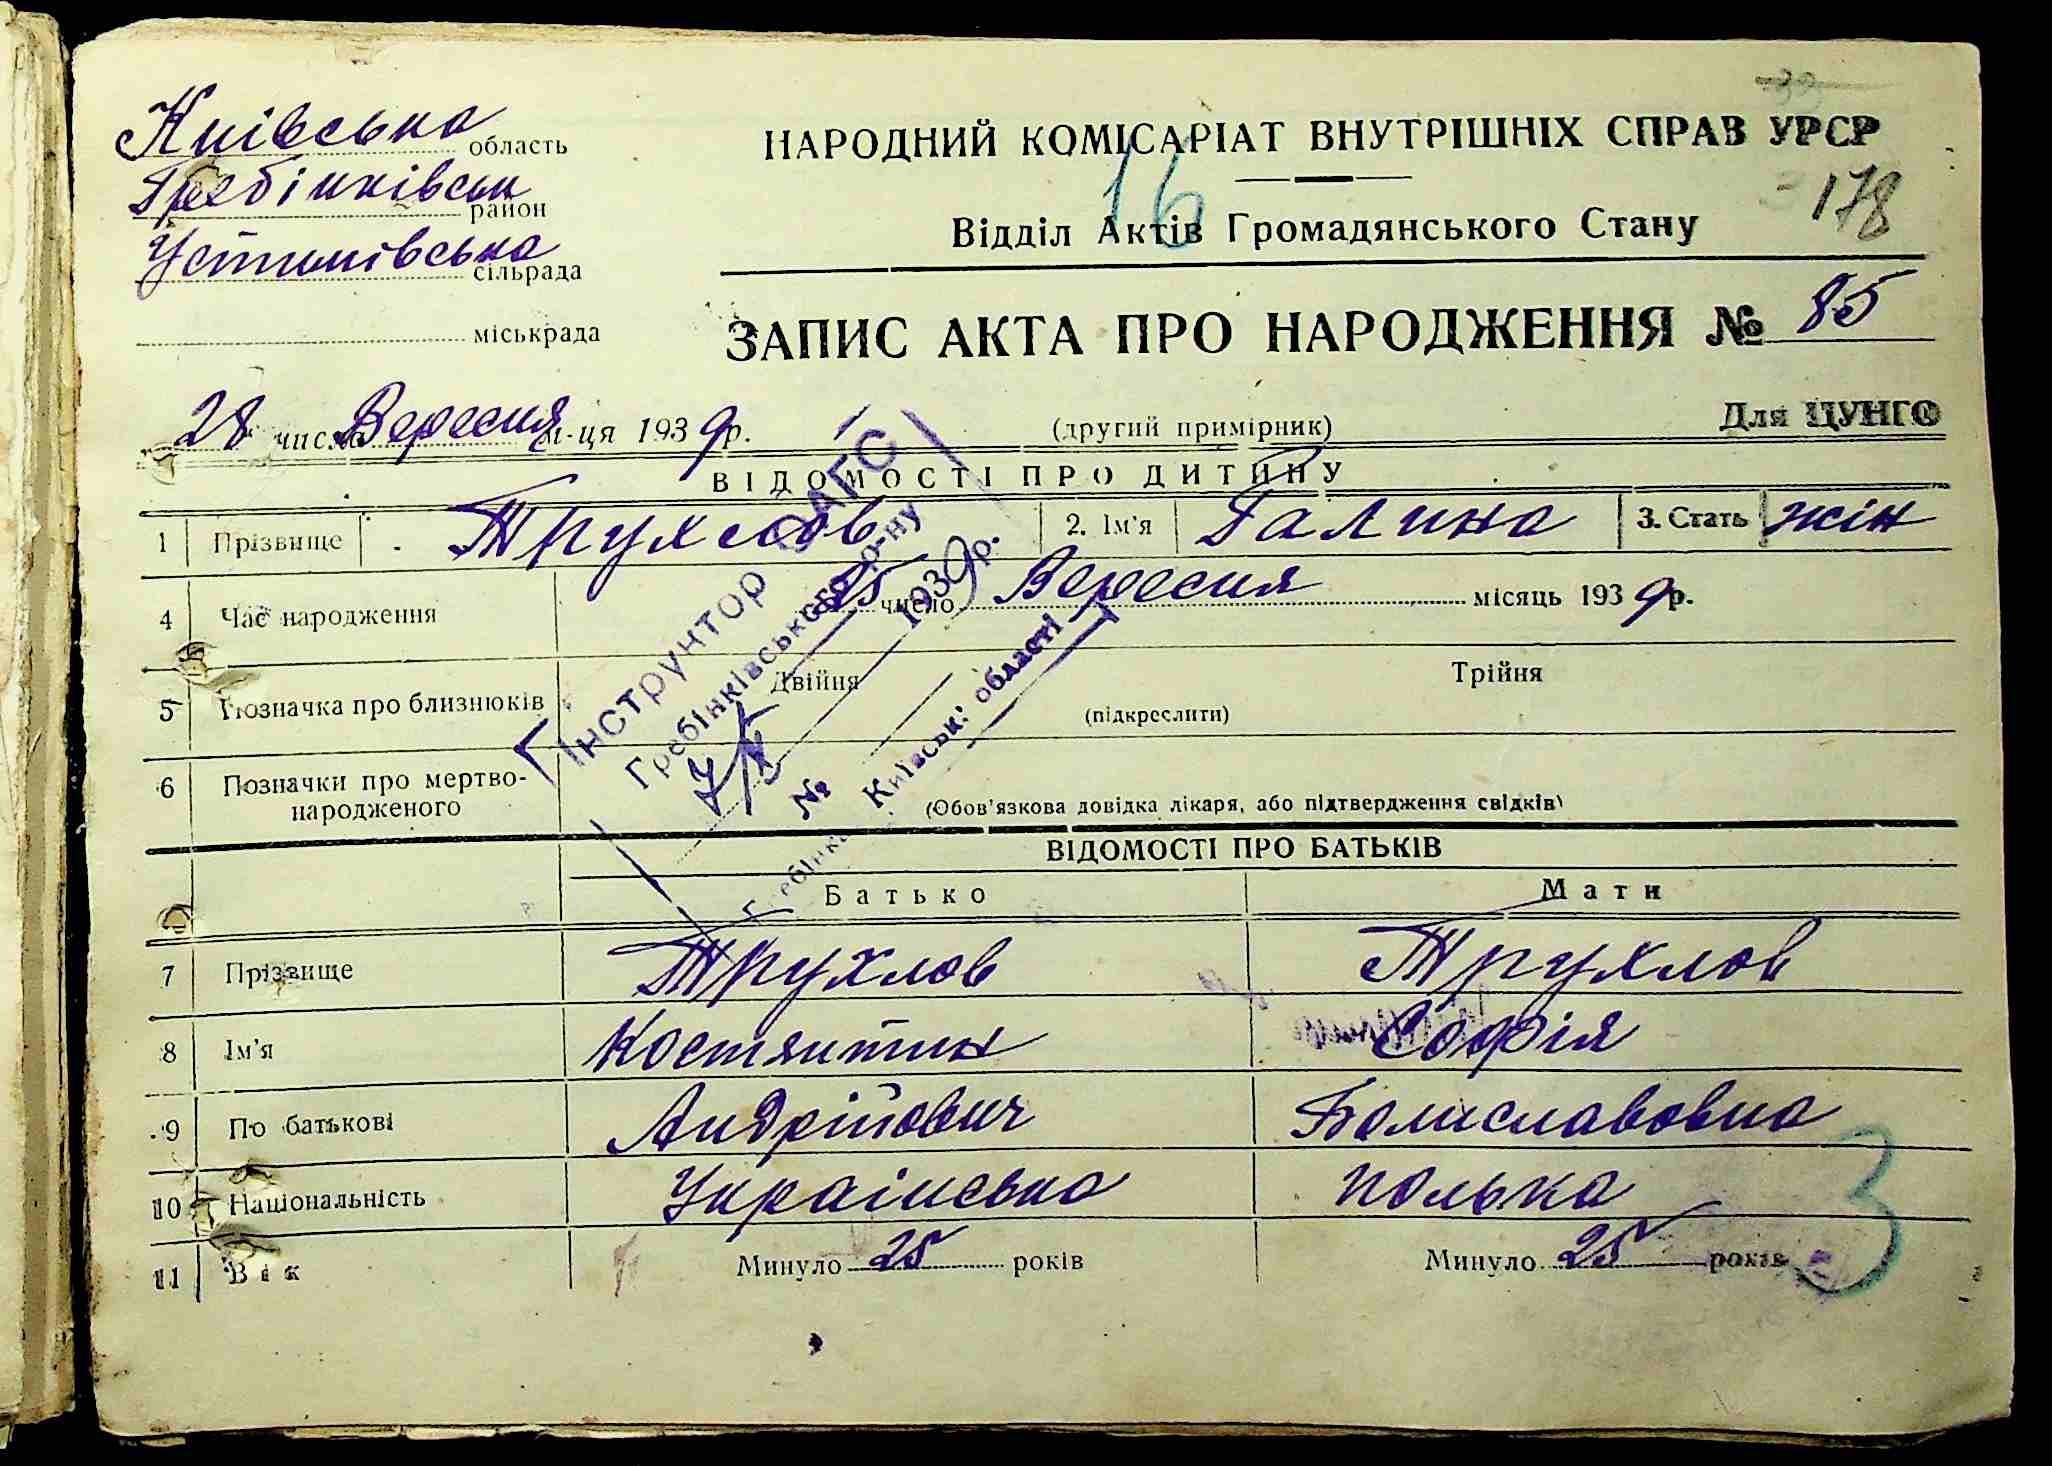 Київська область
Гребінківськ район
Устимівська сільрада
міськрада
НАРОДНИЙ КОМІСАРІАТ ВНУТРІШНІХ СПРАВ УРСР
16
178
Відділ Актів Громадянського Стану
ЗАПИС АКТА ПРО НАРОДЖЕННЯ № 85
28 числа Вересня м-ця 1939р.
(другий примірник)
Для ЦУНГО
ВІДОМОСТІ ПРО ДИТИНУ
1 Прізвище Трухлов 2. Ім'я Галина 3. Стать жін
4 Час народження 25 число Вересня місяць 1939р.
5 Позначка про близнюків Двійня Трійня
(підкреслити)
6 Позначки про мертво-
народженого
(Обов'язкова довідка лікаря, або підтвердження свідків)
Інструнтор ОАГС
Гребінківського р-ну
7/X 1939р.
№
Київськ. області
ВІДОМОСТІ ПРО БАТЬКІВ
Батько Мати
7 Прізвище Трухлов Трухлов
8 Ім'я Костянтин Софія
9 По батькові Андрійович Болиславовна
10 Національність Українська полька
11 Вік Минуло 25 років Минуло 25 років
3